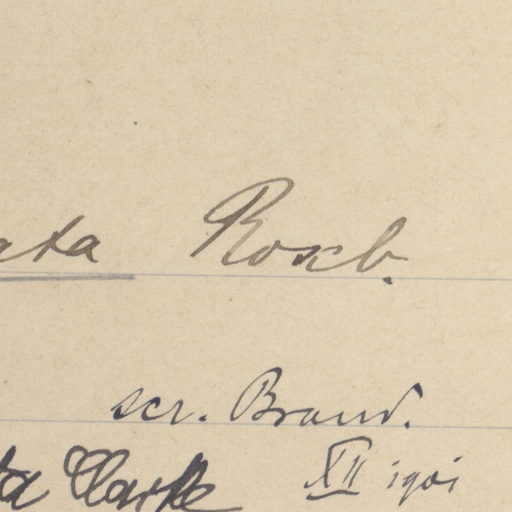 ata Roxb.
scr. Brand.
ta Clarke XII 1901